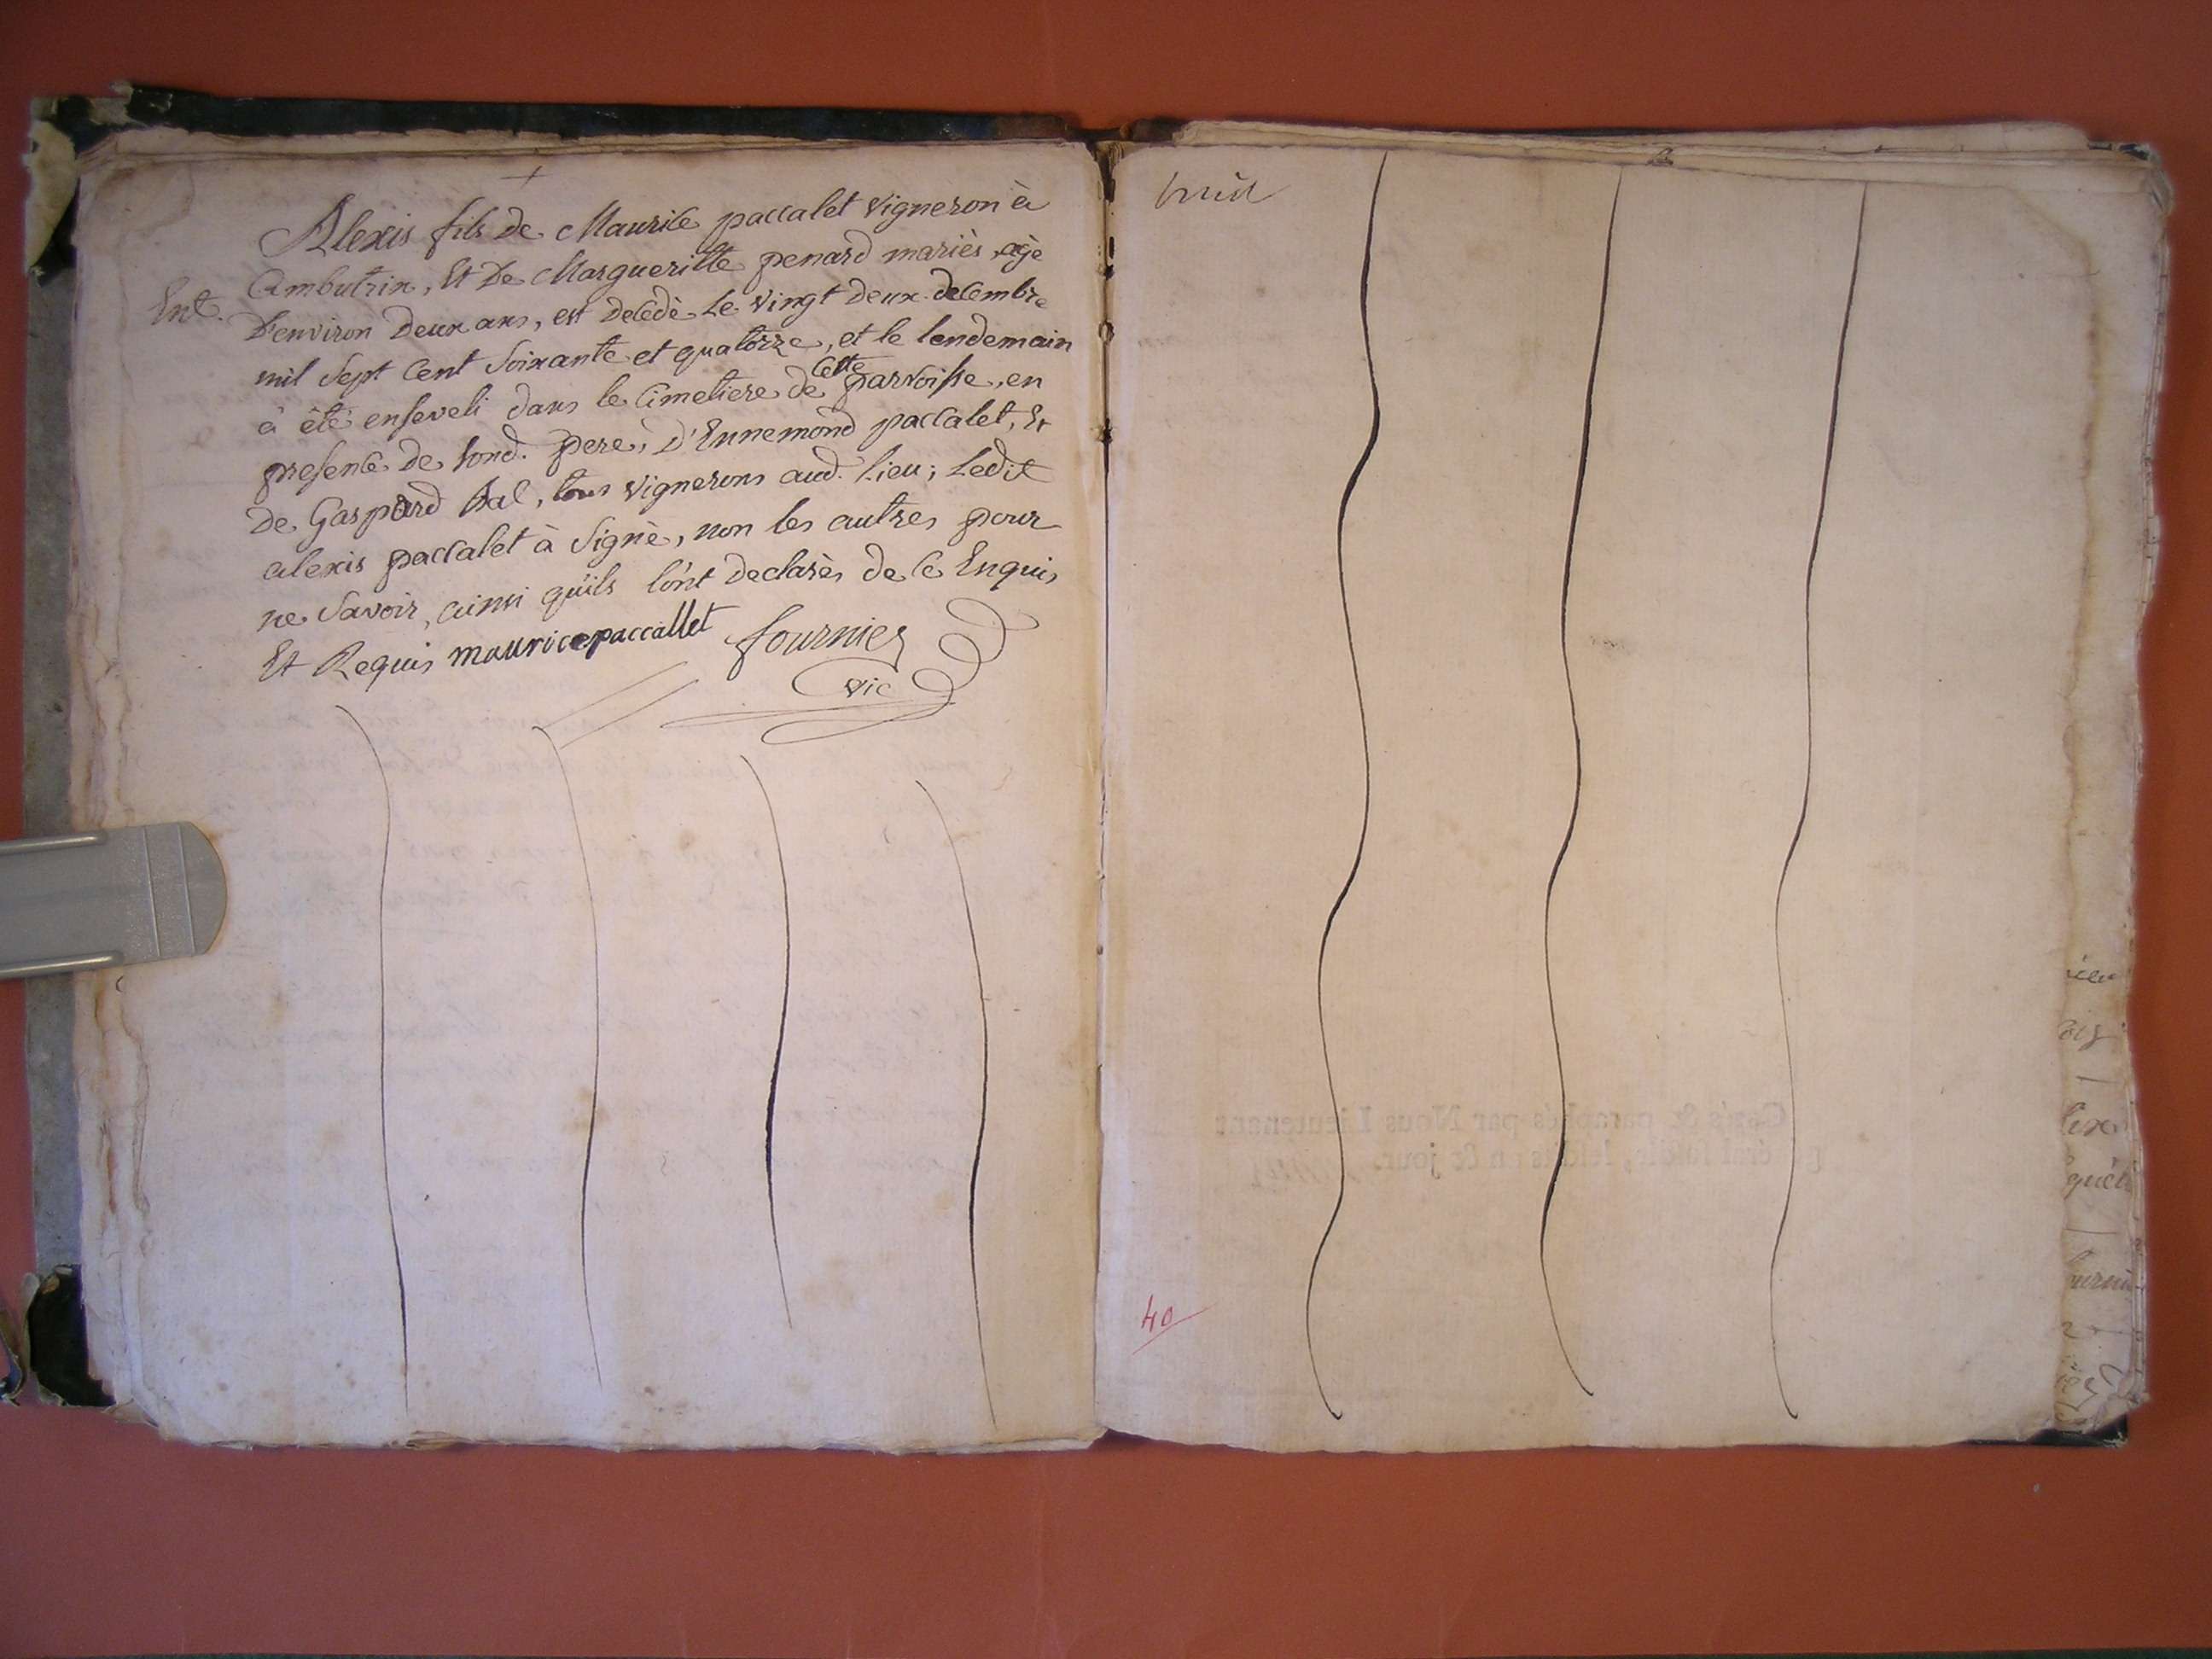 Alexis fils de Maurice paccalet vigneron à
Ambutrix, Et De Margueritte penard mariès, agè
Ent.
D'environ Deux ans, est decedè le vingt deux decembre
mil sept cent soixante et quatorze, et le lendemain
à étè enseveli dans le cimetiere de cette parroisse, en
presence de sond. pere, D'Ennemond paccalet, Et
de Gaspard Bal, tous vignerons aud. lieu; Ledit
alexis paccalet à signè, non les autres pour
ne savoir, ainsi qu'ils l'ont declarès de ce Enquis
Et Requis mauricepaccallet fournier
vic
huit
Cottés & paraphés par Nous Lieutenant
Général susdit, lesdits an & jour.
40